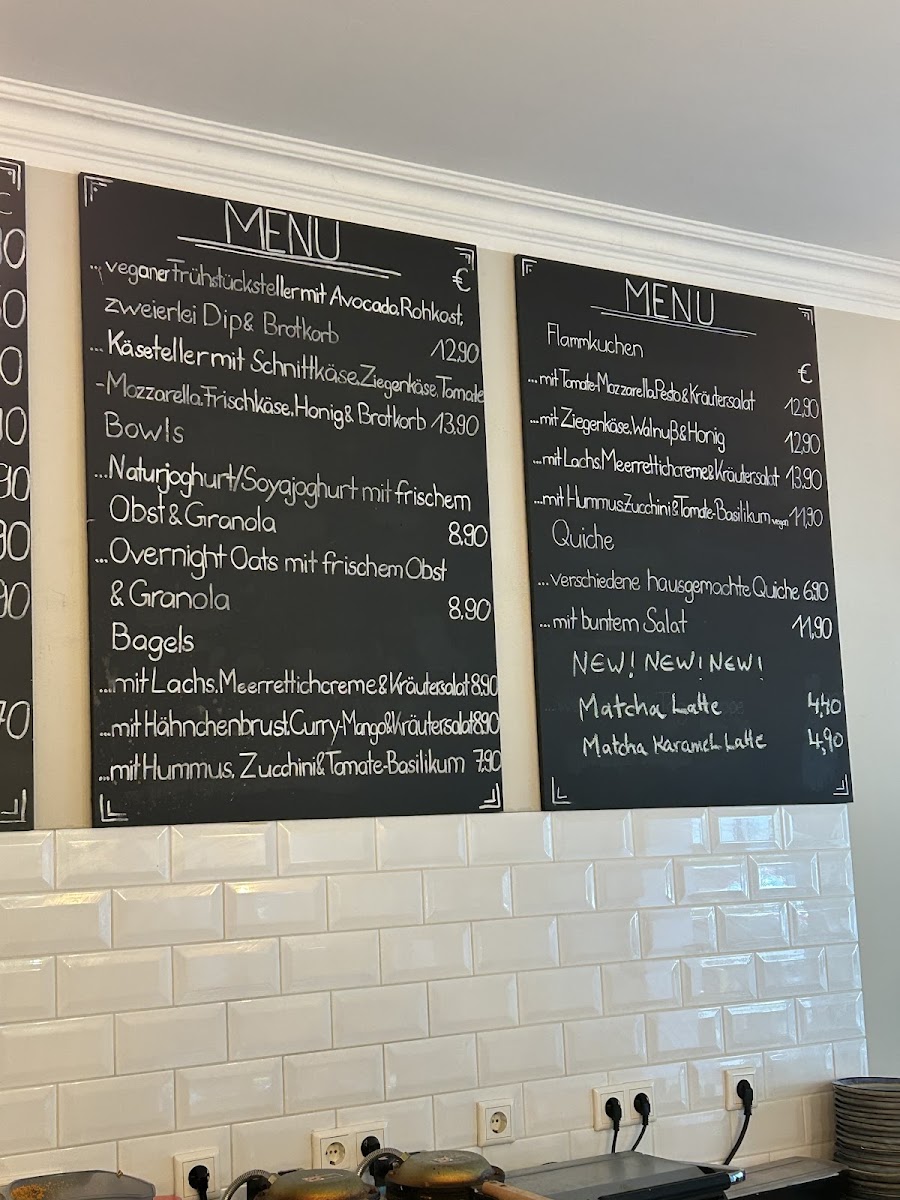 MENU
€
...veganer Frühstücksteller mit Avocado, Rohkost,
zweierlei Dip & Brotkorb 12,90
... Käseteller mit Schnittkäse, Ziegenkäse, Tomate
-Mozzarella, Frischkäse, Honig & Brotkorb 13,90
Bowls
...Naturjoghurt/Soyajoghurt mit frischem
Obst & Granola 8,90
...Overnight Oats mit frischem Obst
& Granola 8,90
Bagels
...mit Lachs, Meerrettichcreme & Kräutersalat 8,90
...mit Hähnchenbrust, Curry-Mango & Kräutersalat 8,90
...mit Hummus, Zucchini & Tomate-Basilikum 7,90
MENU
Flammkuchen
€
...mit Tomate-Mozzarella, Pesto & Kräutersalat 12,90
...mit Ziegenkäse, Walnuß & Honig 12,90
...mit Lachs, Meerrettichcreme & Kräutersalat 13,90
...mit Hummus Zucchini & Tomate-Basilikum vegan 11,90
Quiche
...verschiedene hausgemachte Quiche 6,90
...mit buntem Salat 11,90
NEW! NEW! NEW!
Matcha Latte 4,40
Matcha Karamel Latte 4,90